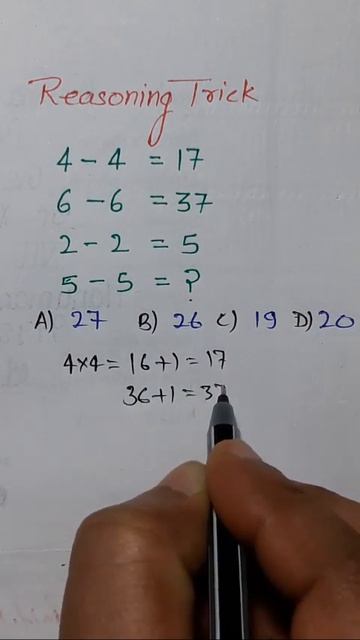 Reasoning Trick
4 - 4 = 17
6 - 6 = 37
2 - 2 = 5
5 - 5 = ?
A) 27 B) 26 C) 19 D) 20
4×4 = 16+1 = 17
36+1 = 37